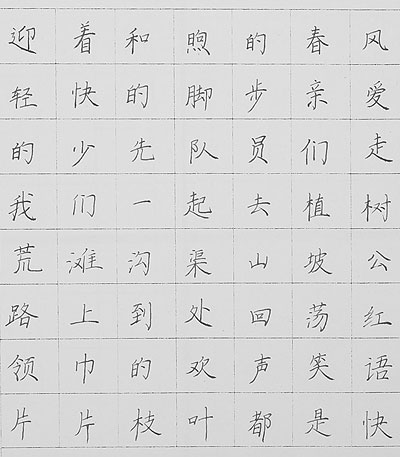 迎着和煦的春风
轻快的脚步亲爱
的少先队员们走
我们一起去植树
荒滩沟渠山坡公
路上到处回荡红
领巾的欢声笑语
片片枝叶都是快